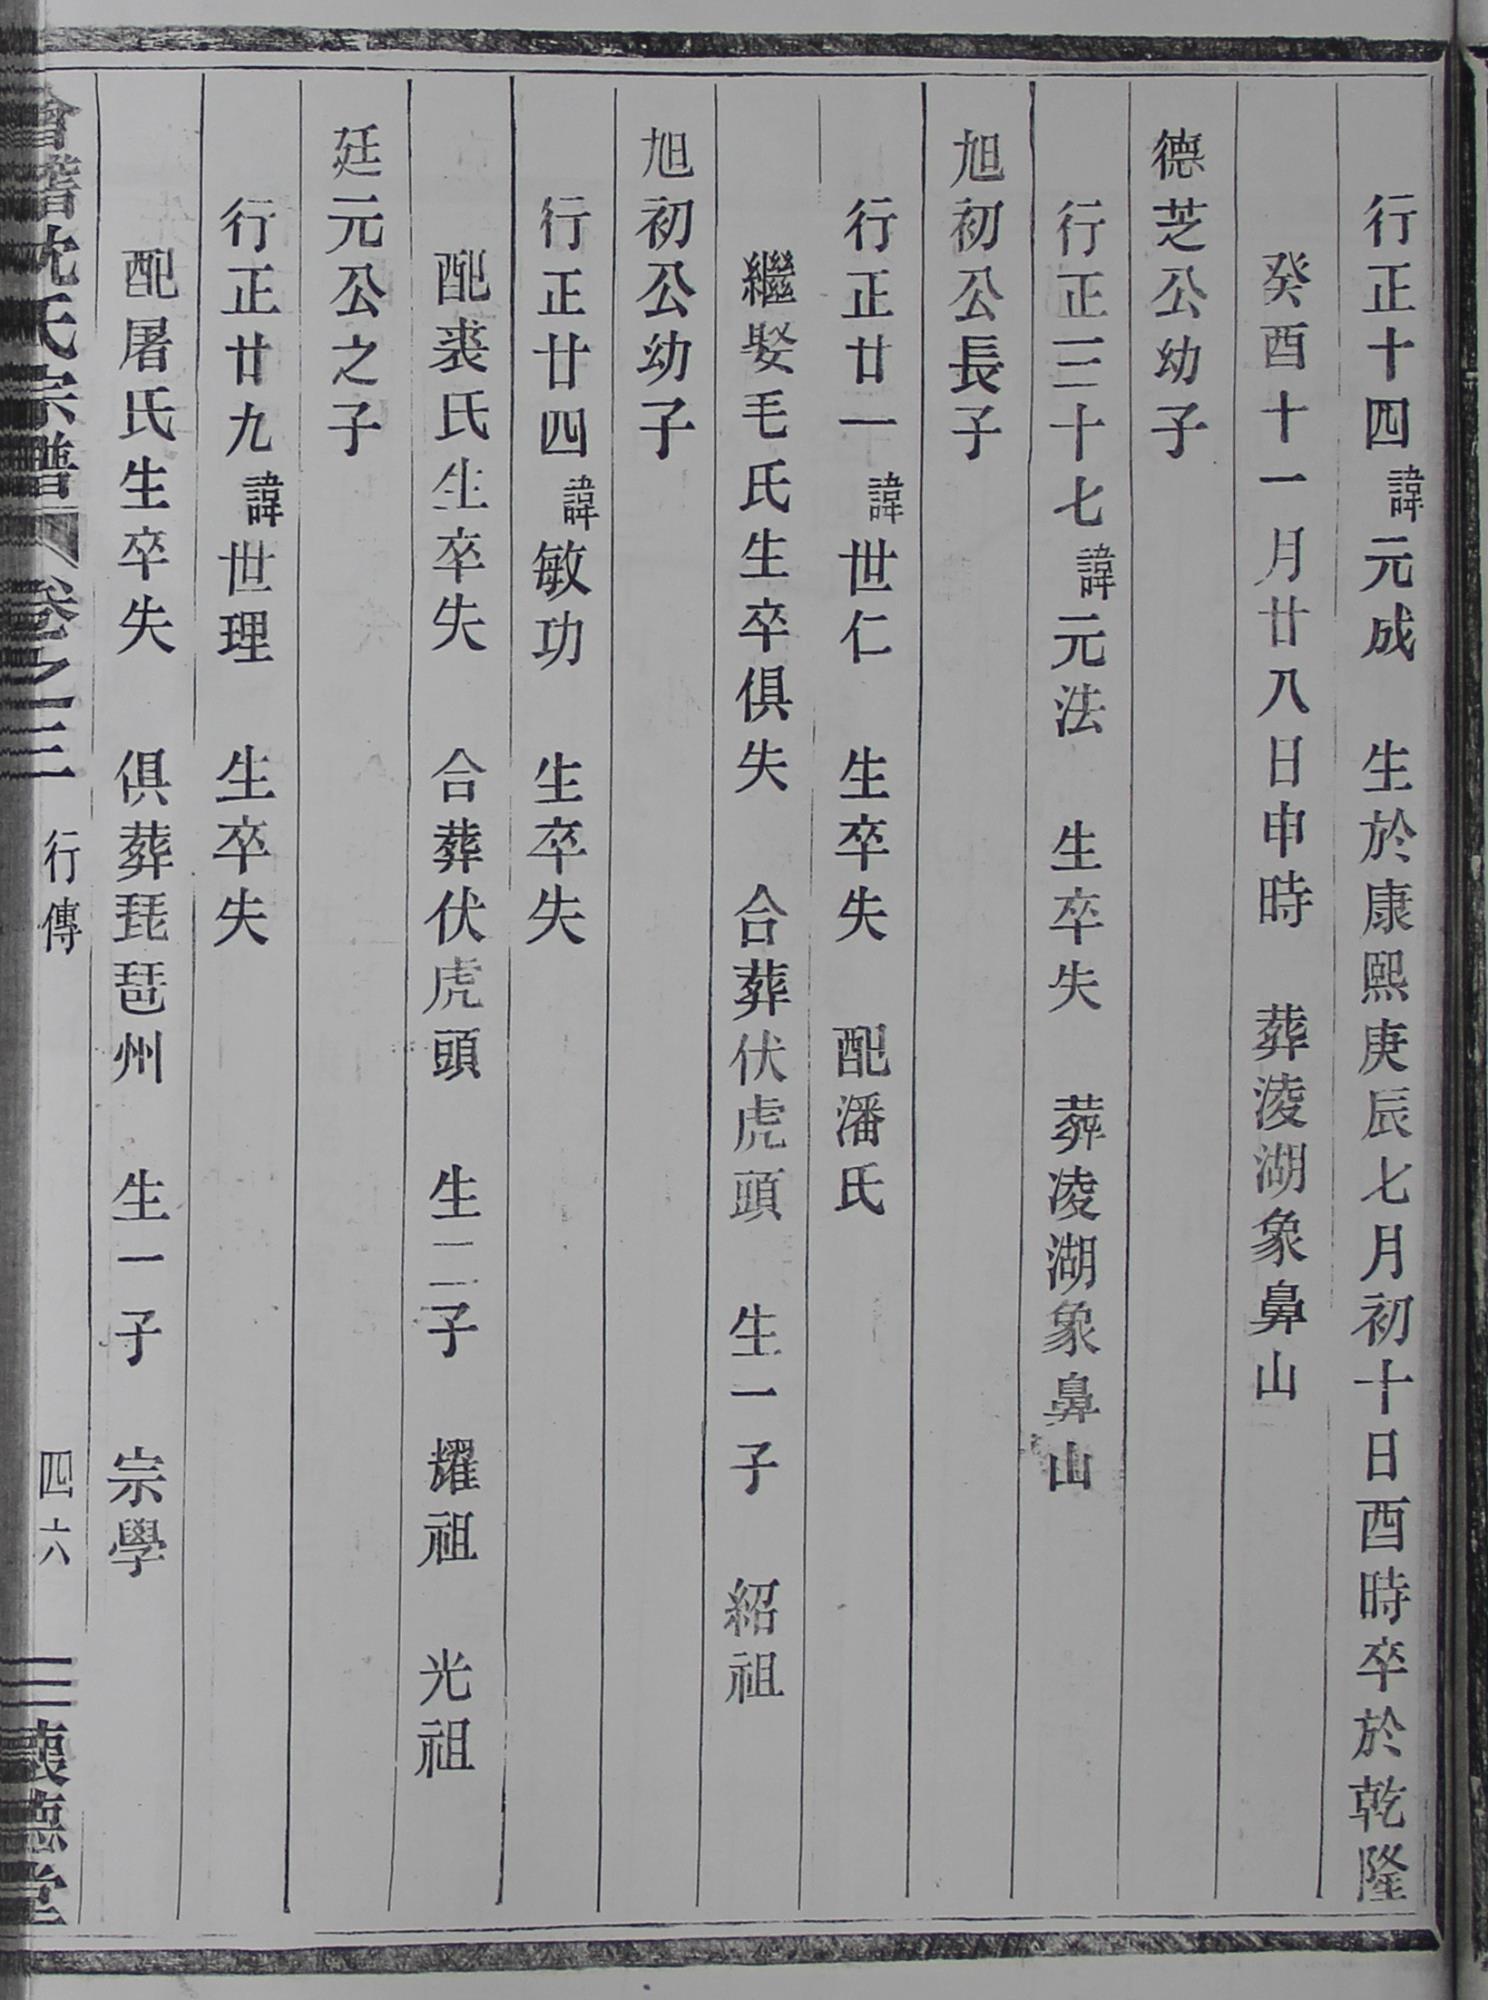 行正十四諱元成　生於康熙庚辰七月初十日酉時卒於乾隆
癸酉十一月廿八日申時　葬淩湖象鼻山
德芝公幼子
行正三十七諱元法　生卒失　葬凌湖象鼻山
旭初公長子
行正廿一諱世仁　生卒失　配潘氏
繼娶毛氏生卒俱失　合葬伏虎頭　生一子　紹祖
旭初公幼子
行正廿四諱敏功　生卒失
配裘氏生卒失　合葬伏虎頭　生二子　耀祖　光祖
廷元公之子
行正廿九諱世理　生卒失
配屠氏生卒失　俱葬琵琶州　生一子　宗學
會稽沈氏宗譜　卷之三　行傳　四六　懷德堂